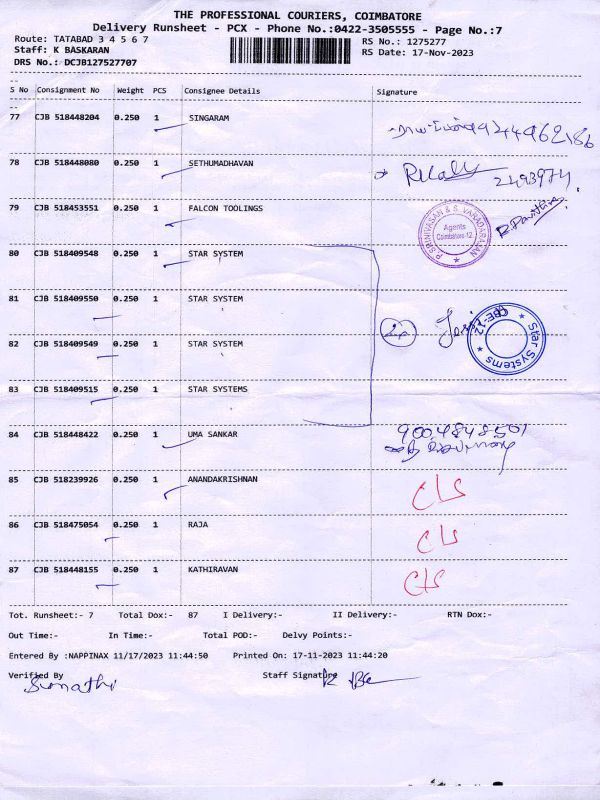 THE PROFESSIONAL COURIERS, COIMBATORE
Delivery Runsheet - PCX - Phone No.:0422-3505555 - Page No.:7
Route: TATABAD 3 4 5 6 7
RS No.: 1275277
Staff: K BASKARAN
RS Date: 17-Nov-2023
DRS No.: DCJB127527707
S No Consignment No Weight PCS Consignee Details Signature
77 CJB 518448204 0.250 1 SINGARAM
78 CJB 518448080 0.250 1 SETHUMADHAVAN
2493974
79 CJB 518453551 0.250 1 FALCON TOOLINGS
P. SRINIVASAN & S. VARADARAJAN
Agents
Coimbatore-12.
80 CJB 518409548 0.250 1 STAR SYSTEM
81 CJB 518409550 0.250 1 STAR SYSTEM
Star Systems
CBE-12
82 CJB 518409549 0.250 1 STAR SYSTEM
83 CJB 518409515 0.250 1 STAR SYSTEMS
84 CJB 518448422 0.250 1 UMA SANKAR
9004848501
85 CJB 518239926 0.250 1 ANANDAKRISHNAN
C/S
86 CJB 518475054 0.250 1 RAJA
C/S
87 CJB 518448155 0.250 1 KATHIRAVAN
C/S
Tot. Runsheet:- 7 Total Dox:- 87 I Delivery:- II Delivery:- RTN Dox:-
Out Time:- In Time:- Total POD:- Delvy Points:-
Entered By :NAPPINAX 11/17/2023 11:44:50 Printed On: 17-11-2023 11:44:20
Verified By Staff Signature
Sumathi